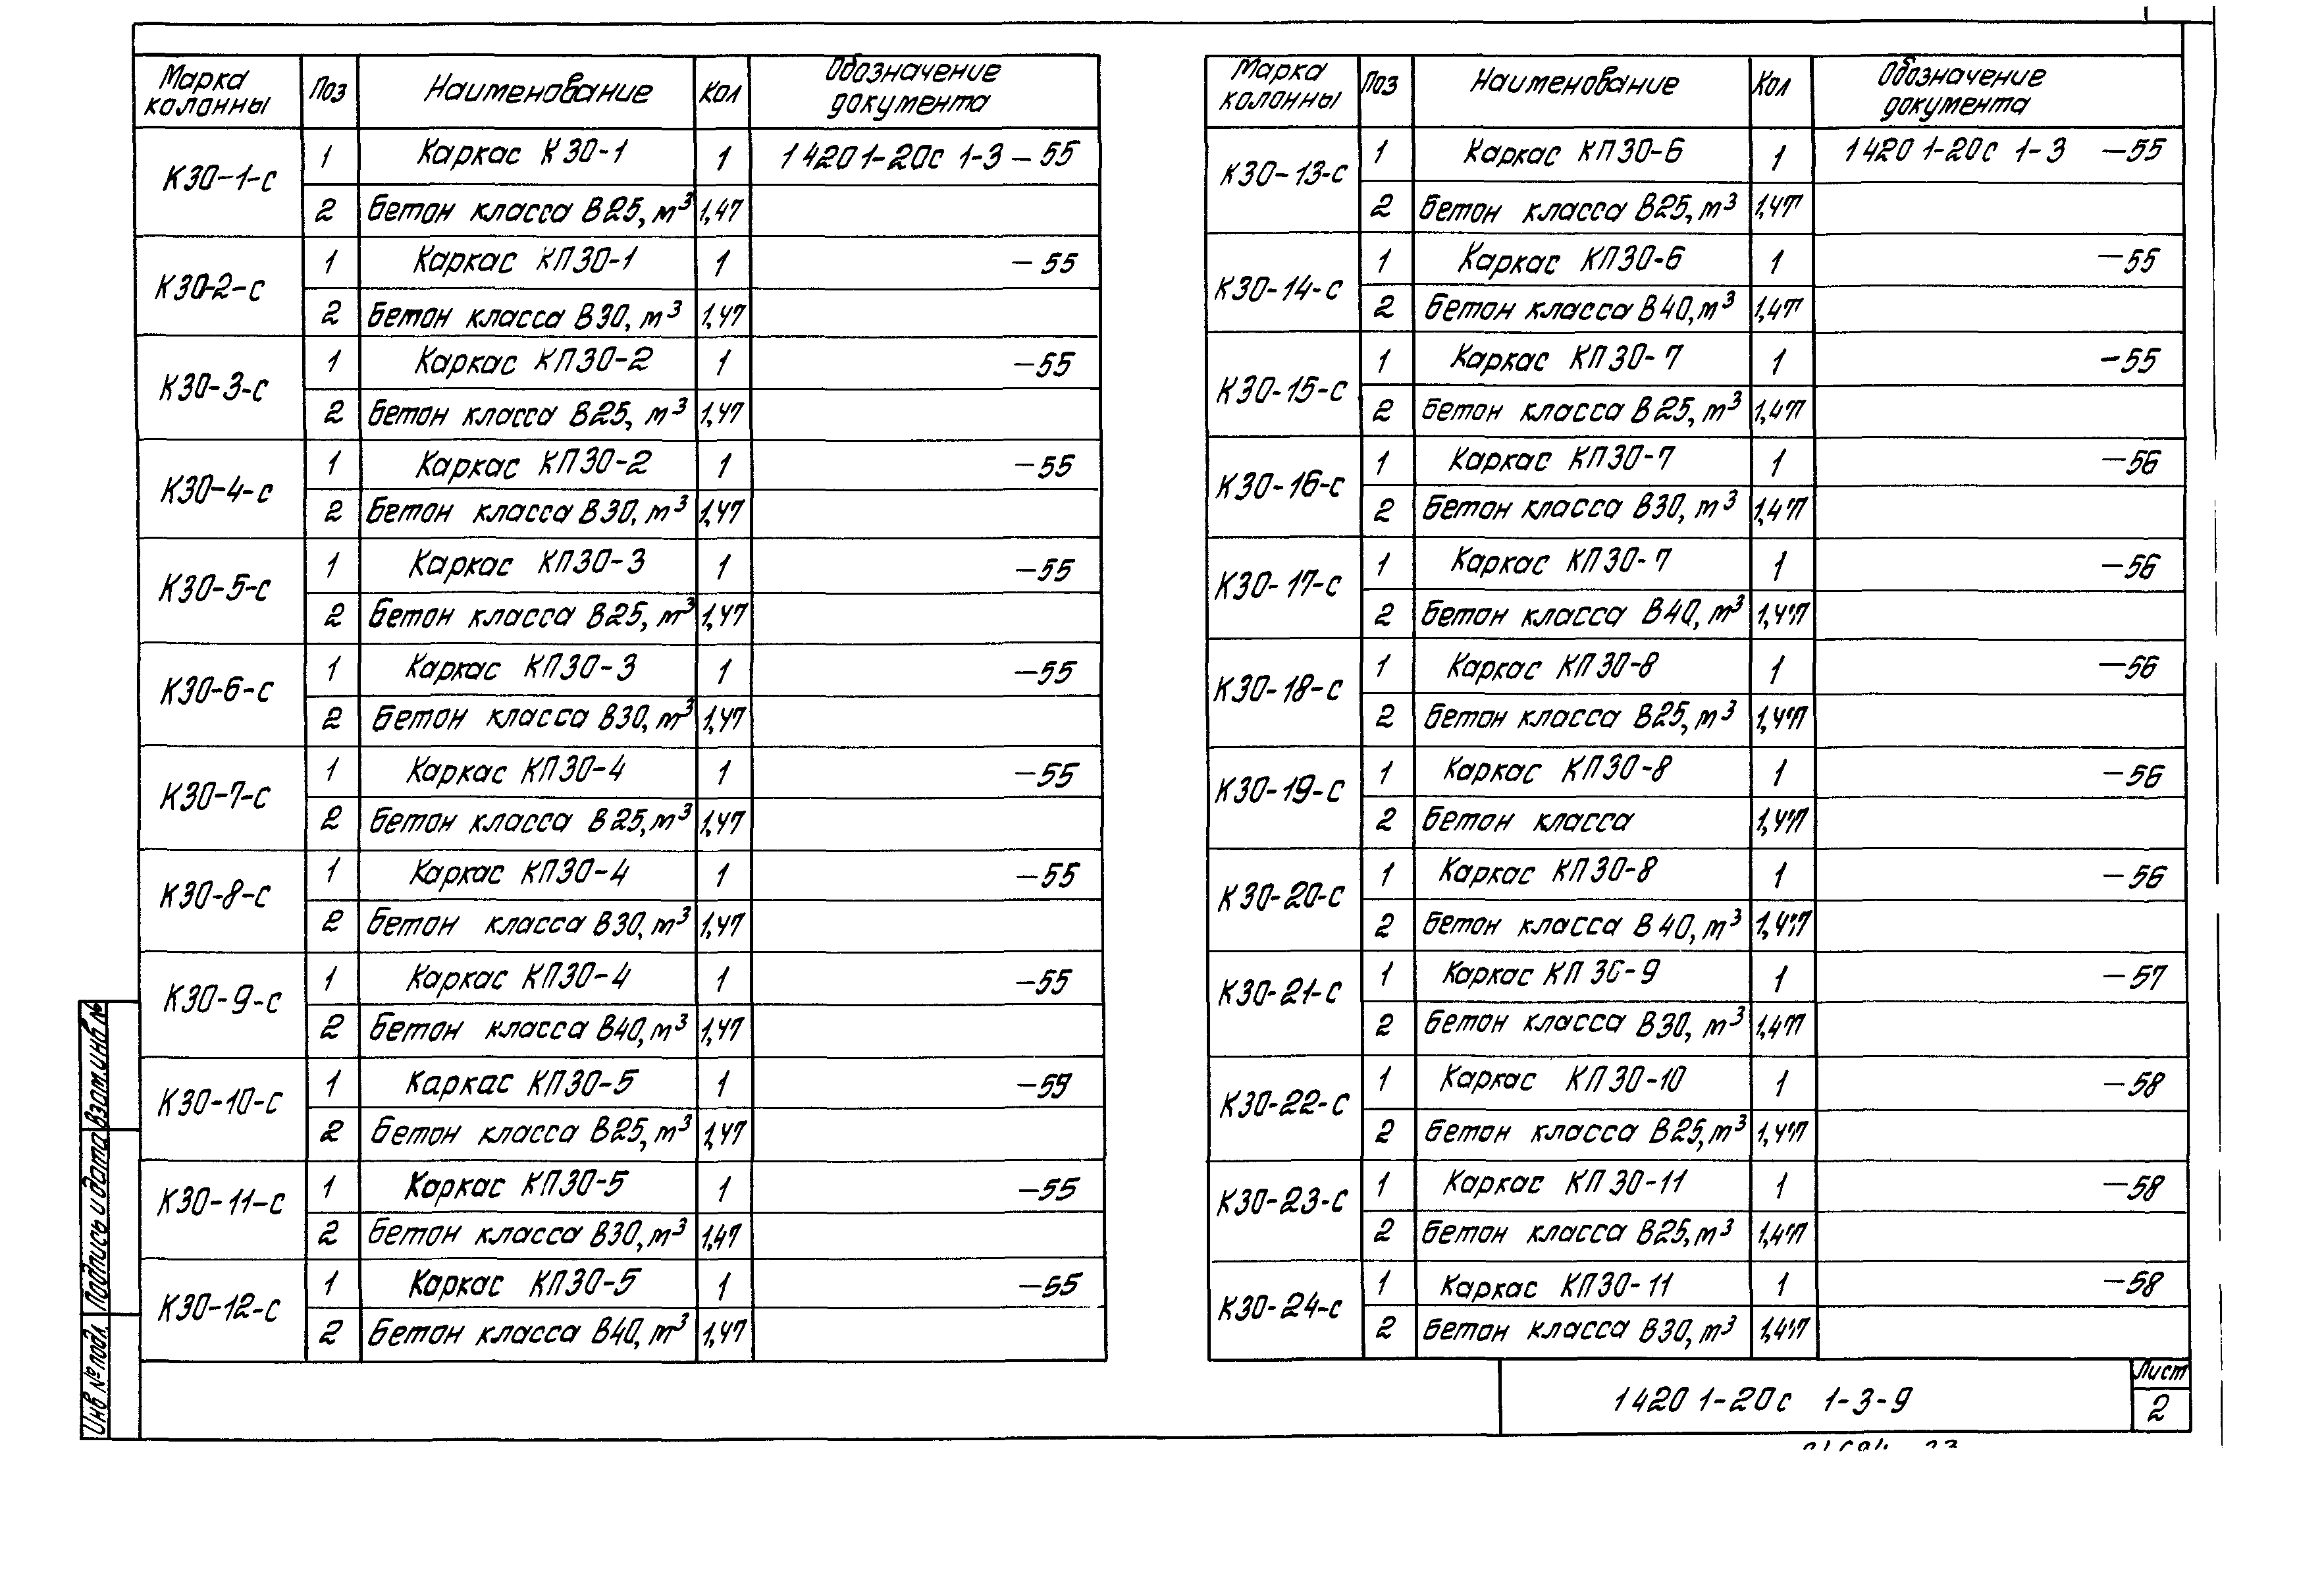 Марка колонны Поз Наименование Кол Обозначение документа
К30-1-с 1 Каркас К30-1 1 1420 1-20с 1-3 -55
2 Бетон класса В25, м³ 1,47
К30-2-с 1 Каркас КП30-1 1 -55
2 Бетон класса В30, м³ 1,47
К30-3-с 1 Каркас КП30-2 1 -55
2 Бетон класса В25, м³ 1,47
К30-4-с 1 Каркас КП30-2 1 -55
2 Бетон класса В30, м³ 1,47
К30-5-с 1 Каркас КП30-3 1 -55
2 Бетон класса В25, м³ 1,47
К30-6-с 1 Каркас КП30-3 1 -55
2 Бетон класса В30, м³ 1,47
К30-7-с 1 Каркас КП30-4 1 -55
2 Бетон класса В25, м³ 1,47
К30-8-с 1 Каркас КП30-4 1 -55
2 Бетон класса В30, м³ 1,47
К30-9-с 1 Каркас КП30-4 1 -55
2 Бетон класса В40, м³ 1,47
К30-10-с 1 Каркас КП30-5 1 -59
2 Бетон класса В25, м³ 1,47
К30-11-с 1 Каркас КП30-5 1 -55
2 Бетон класса В30, м³ 1,47
К30-12-с 1 Каркас КП30-5 1 -55
2 Бетон класса В40, м³ 1,47
Марка колонны Поз Наименование Кол Обозначение документа
К30-13-с 1 Каркас КП30-6 1 1420 1-20с 1-3 -55
2 Бетон класса В25, м³ 1,47
К30-14-с 1 Каркас КП30-6 1 -55
2 Бетон класса В40, м³ 1,47
К30-15-с 1 Каркас КП30-7 1 -55
2 Бетон класса В25, м³ 1,47
К30-16-с 1 Каркас КП30-7 1 -56
2 Бетон класса В30, м³ 1,47
К30-17-с 1 Каркас КП30-7 1 -56
2 Бетон класса В40, м³ 1,47
К30-18-с 1 Каркас КП30-8 1 -56
2 Бетон класса В25, м³ 1,47
К30-19-с 1 Каркас КП30-8 1 -56
2 Бетон класса 1,47
К30-20-с 1 Каркас КП30-8 1 -56
2 Бетон класса В40, м³ 1,47
К30-21-с 1 Каркас КП30-9 1 -57
2 Бетон класса В30, м³ 1,47
К30-22-с 1 Каркас КП30-10 1 -58
2 Бетон класса В25, м³ 1,47
К30-23-с 1 Каркас КП30-11 1 -58
2 Бетон класса В25, м³ 1,47
К30-24-с 1 Каркас КП30-11 1 -58
2 Бетон класса В30, м³ 1,47
Инв № подл Подпись и дата Взам.инв №
1420 1-20с 1-3-9
Лист
2